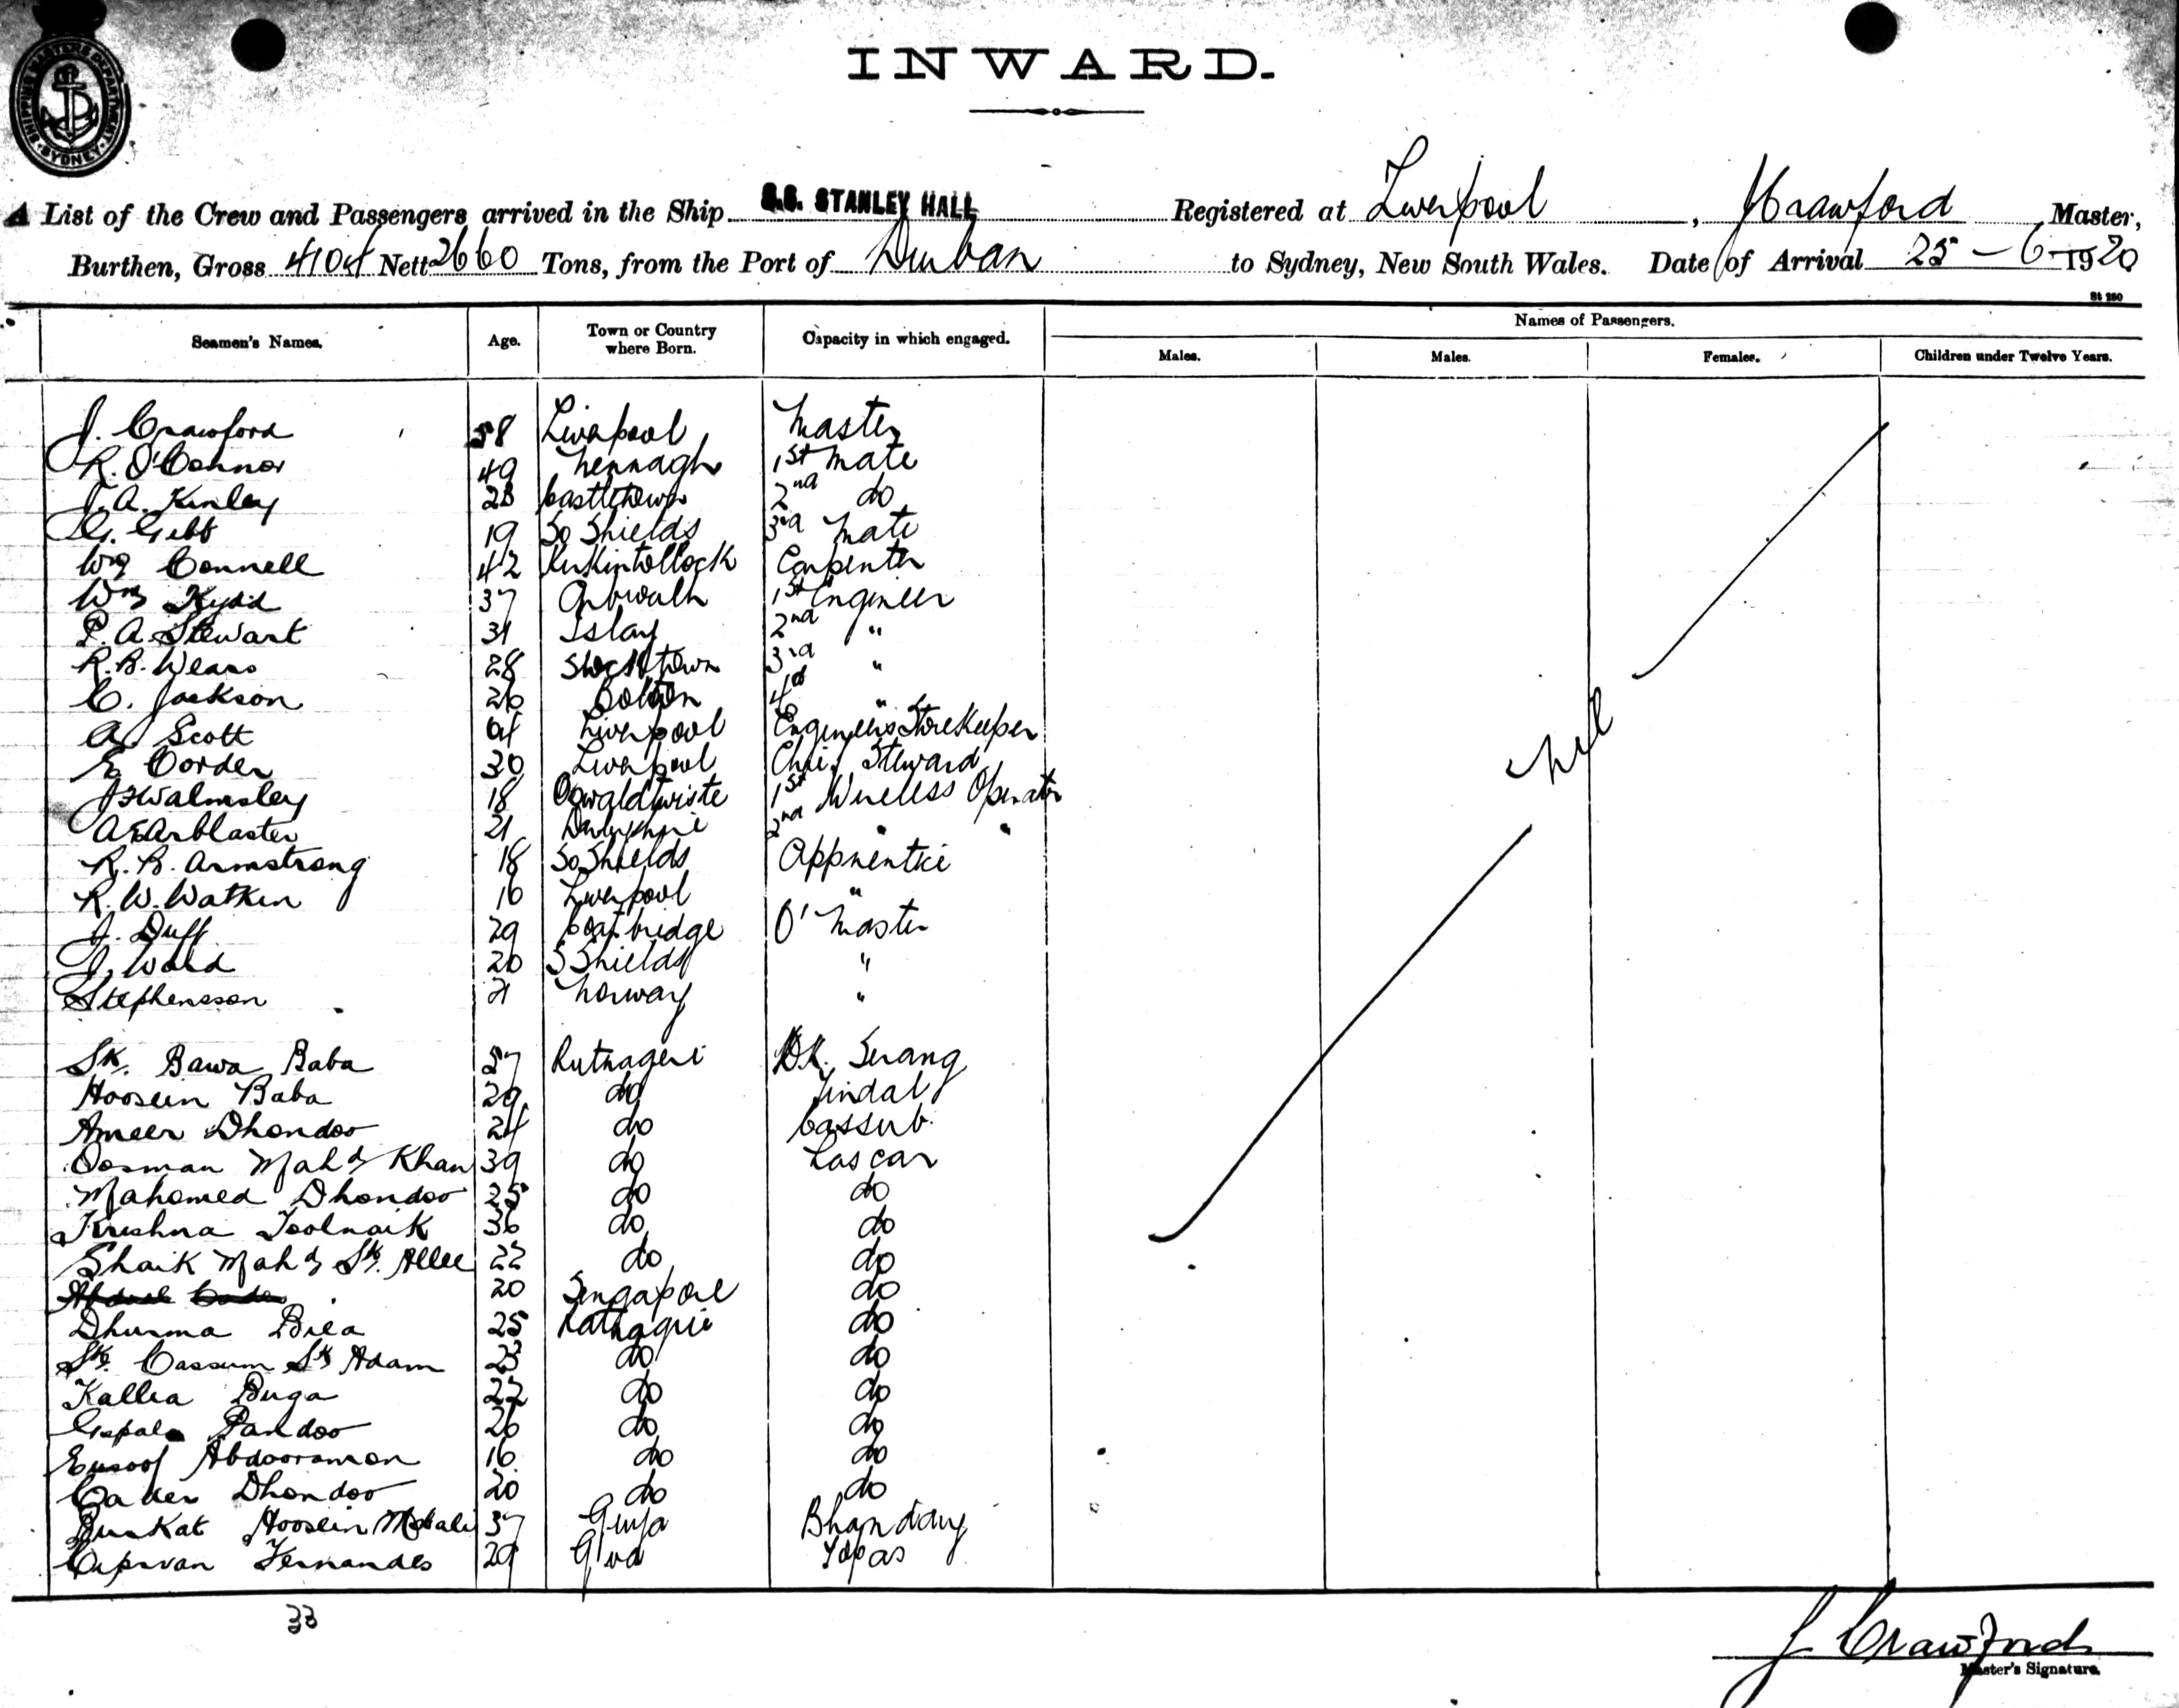 SHIPPING MASTERS DEPARTMENT SYDNEY
INWARD.
A List of the Crew and Passengers arrived in the Ship S.S. STANLEY HALL Registered at Liverpool, J Crawford Master,
Burthen, Gross 4104 Nett 2660 Tons, from the Port of Durban to Sydney, New South Wales. Date of Arrival 25-6-1920
St 280
Seamen's Names. Age. Town or Country where Born. Capacity in which engaged. Names of Passengers.
Males. Males. Females. Children under Twelve Years.
J. Crawford 58 Liverpool Master
R. O'Connor 49 Nennagh 1st Mate
J. A. Kinley 28 Castletown 2nd do
G. Gibb 19 So Shields 3rd Mate
Wm Connell 42 Kirkintollock Carpenter
Wm Kydd 37 Arbroath 1st Engineer
P. A. Stewart 31 Islay 2nd "
R. B. Wears 28 3rd "
C. Jackson 26 Bolton 4th "
A. Scott 64 Liverpool Engineers Storekeeper
E Corder 30 Liverpool Chief Steward
J Walmsley 18 Oswaldtwiste 1st Wireless Operator
A E Arblaster 21 2nd " "
R. B. Armstrong 18 So Shields Apprentice
R. W. Watkin 16 Liverpool "
J. Duff 29 Coatbridge Q' Master
J. Ward 20 S Shields "
Stephensson 21 Norway "
Sk. Bawa Baba 57 Rutnageri Dk. Serang
Hoosein Baba 29 do Tindal
Ameer Dhondoo 24 do Cassub.
Oosman Mahd Khan 39 do Lascar
Mahomed Dhondoo 25 do do
Krishna Toolnaik 36 do do
Shaik Mahd Sk. Allee 22 do do
20 Singapore do
Dhurma Biea 25 Ratnagiri do
Sk. Cassum Sk Adam 23 do do
Kallia Buga 22 do do
Gopala Pandoo 26 do do
Eusoof Abdooraman 16 do do
Cader Dhondoo 20 do do
Burkat Hoosein 37 Bhandary
Fernandes 29 Goa Topas
Nil
33
J Crawford
Master's Signature.